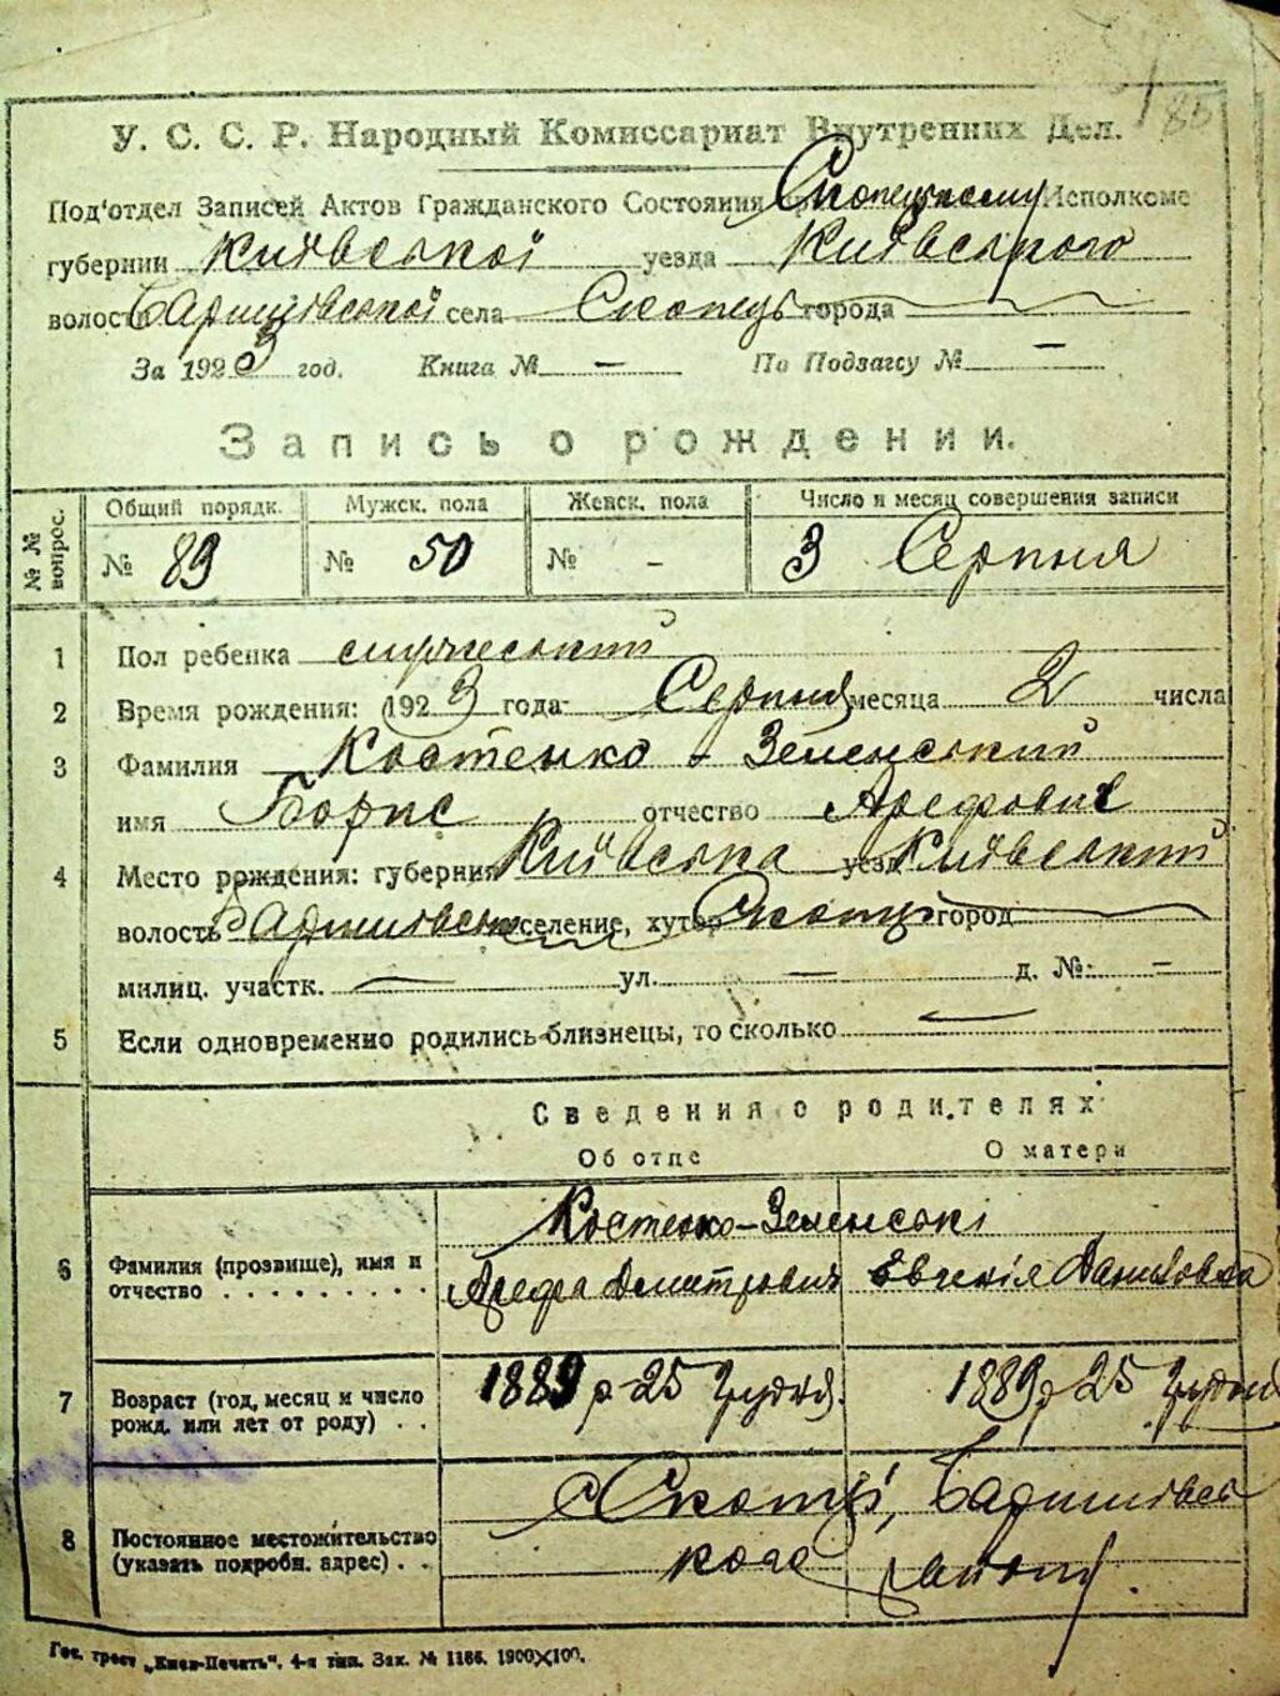 85
У. С. С. Р. Народный Комиссариат Внутренних Дел.
Под'отдел Записей Актов Гражданского Состояния Скопецькому Исполкоме
губернии Київської уезда Київського
волости Баришівської села Скопець города
За 1923 год. Книга № — По Подзагсу № —
Запись о рождении.
№№ вопрос.
Общий порядк. Мужск. пола Женск. пола Число и месяц совершения записи
№ 89 № 50 № - 3 Серпня
1 Пол ребенка
2 Время рождения: 1923 года Серпня месяца 2 числа
3 Фамилия Костенко - Зеленський
имя Борис отчество Арефович
4 Место рождения: губерния Київська уезд Київський
волость Баришівська селение, хутор Скопці город
милиц. участк. — ул. — д. №: —
5 Если одновременно родились близнецы, то сколько —
Сведения о родителях
Об отце О матери
Костенко-Зеленські
6 Фамилия (прозвище), имя и отчество . . . . . . . . . . Арефа Дмитрович Евгенія Даниловна
7 Возраст (год, месяц и число рожд. или лет от роду) . . 1889 р 25 Грудня. 1889 р 25 Грудня
8 Постоянное местожительство (указать подробн. адрес) . . с Скопці, Баришівсь
кого
Гос. трест „Киев-Печать“. 4-я тип. Зак. № 1166. 1900×100.